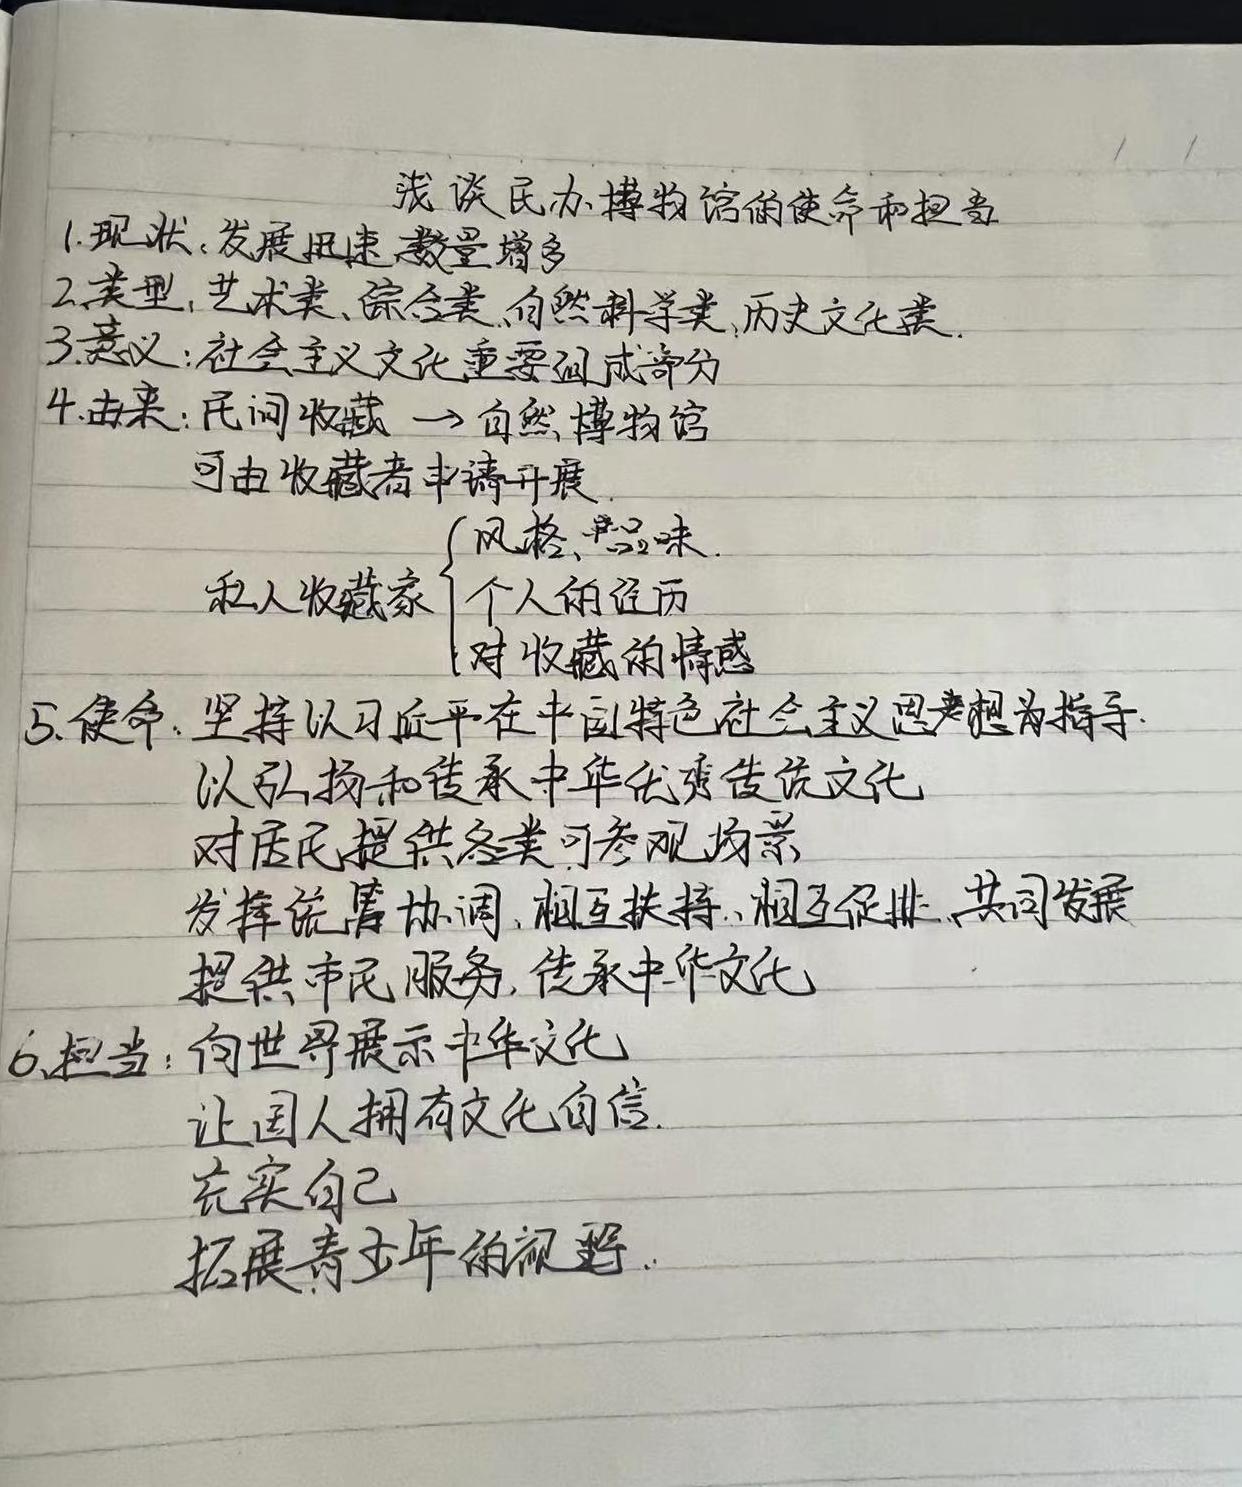 浅谈民办博物馆的使命和担当
1.现状:发展迅速 数量增多
2.类型:艺术类、综合类、自然科学类、历史文化类.
3.意义:社会主义文化重要组成部分
4.由来:民间收藏 → 自然博物馆
可由收藏者申请开展.
风格、品味.
私人收藏家 { 个人的经历
对收藏的情感
5.使命:坚持以习近平在中国特色社会主义思想为指导.
以弘扬和传承中华优秀传统文化
对居民提供各类可参观场景
发挥统筹协调、相互扶持、相互促进、共同发展
提供市民服务,传承中华文化
6.担当:向世界展示中华文化
让国人拥有文化自信.
充实自己
拓展青少年的视野..